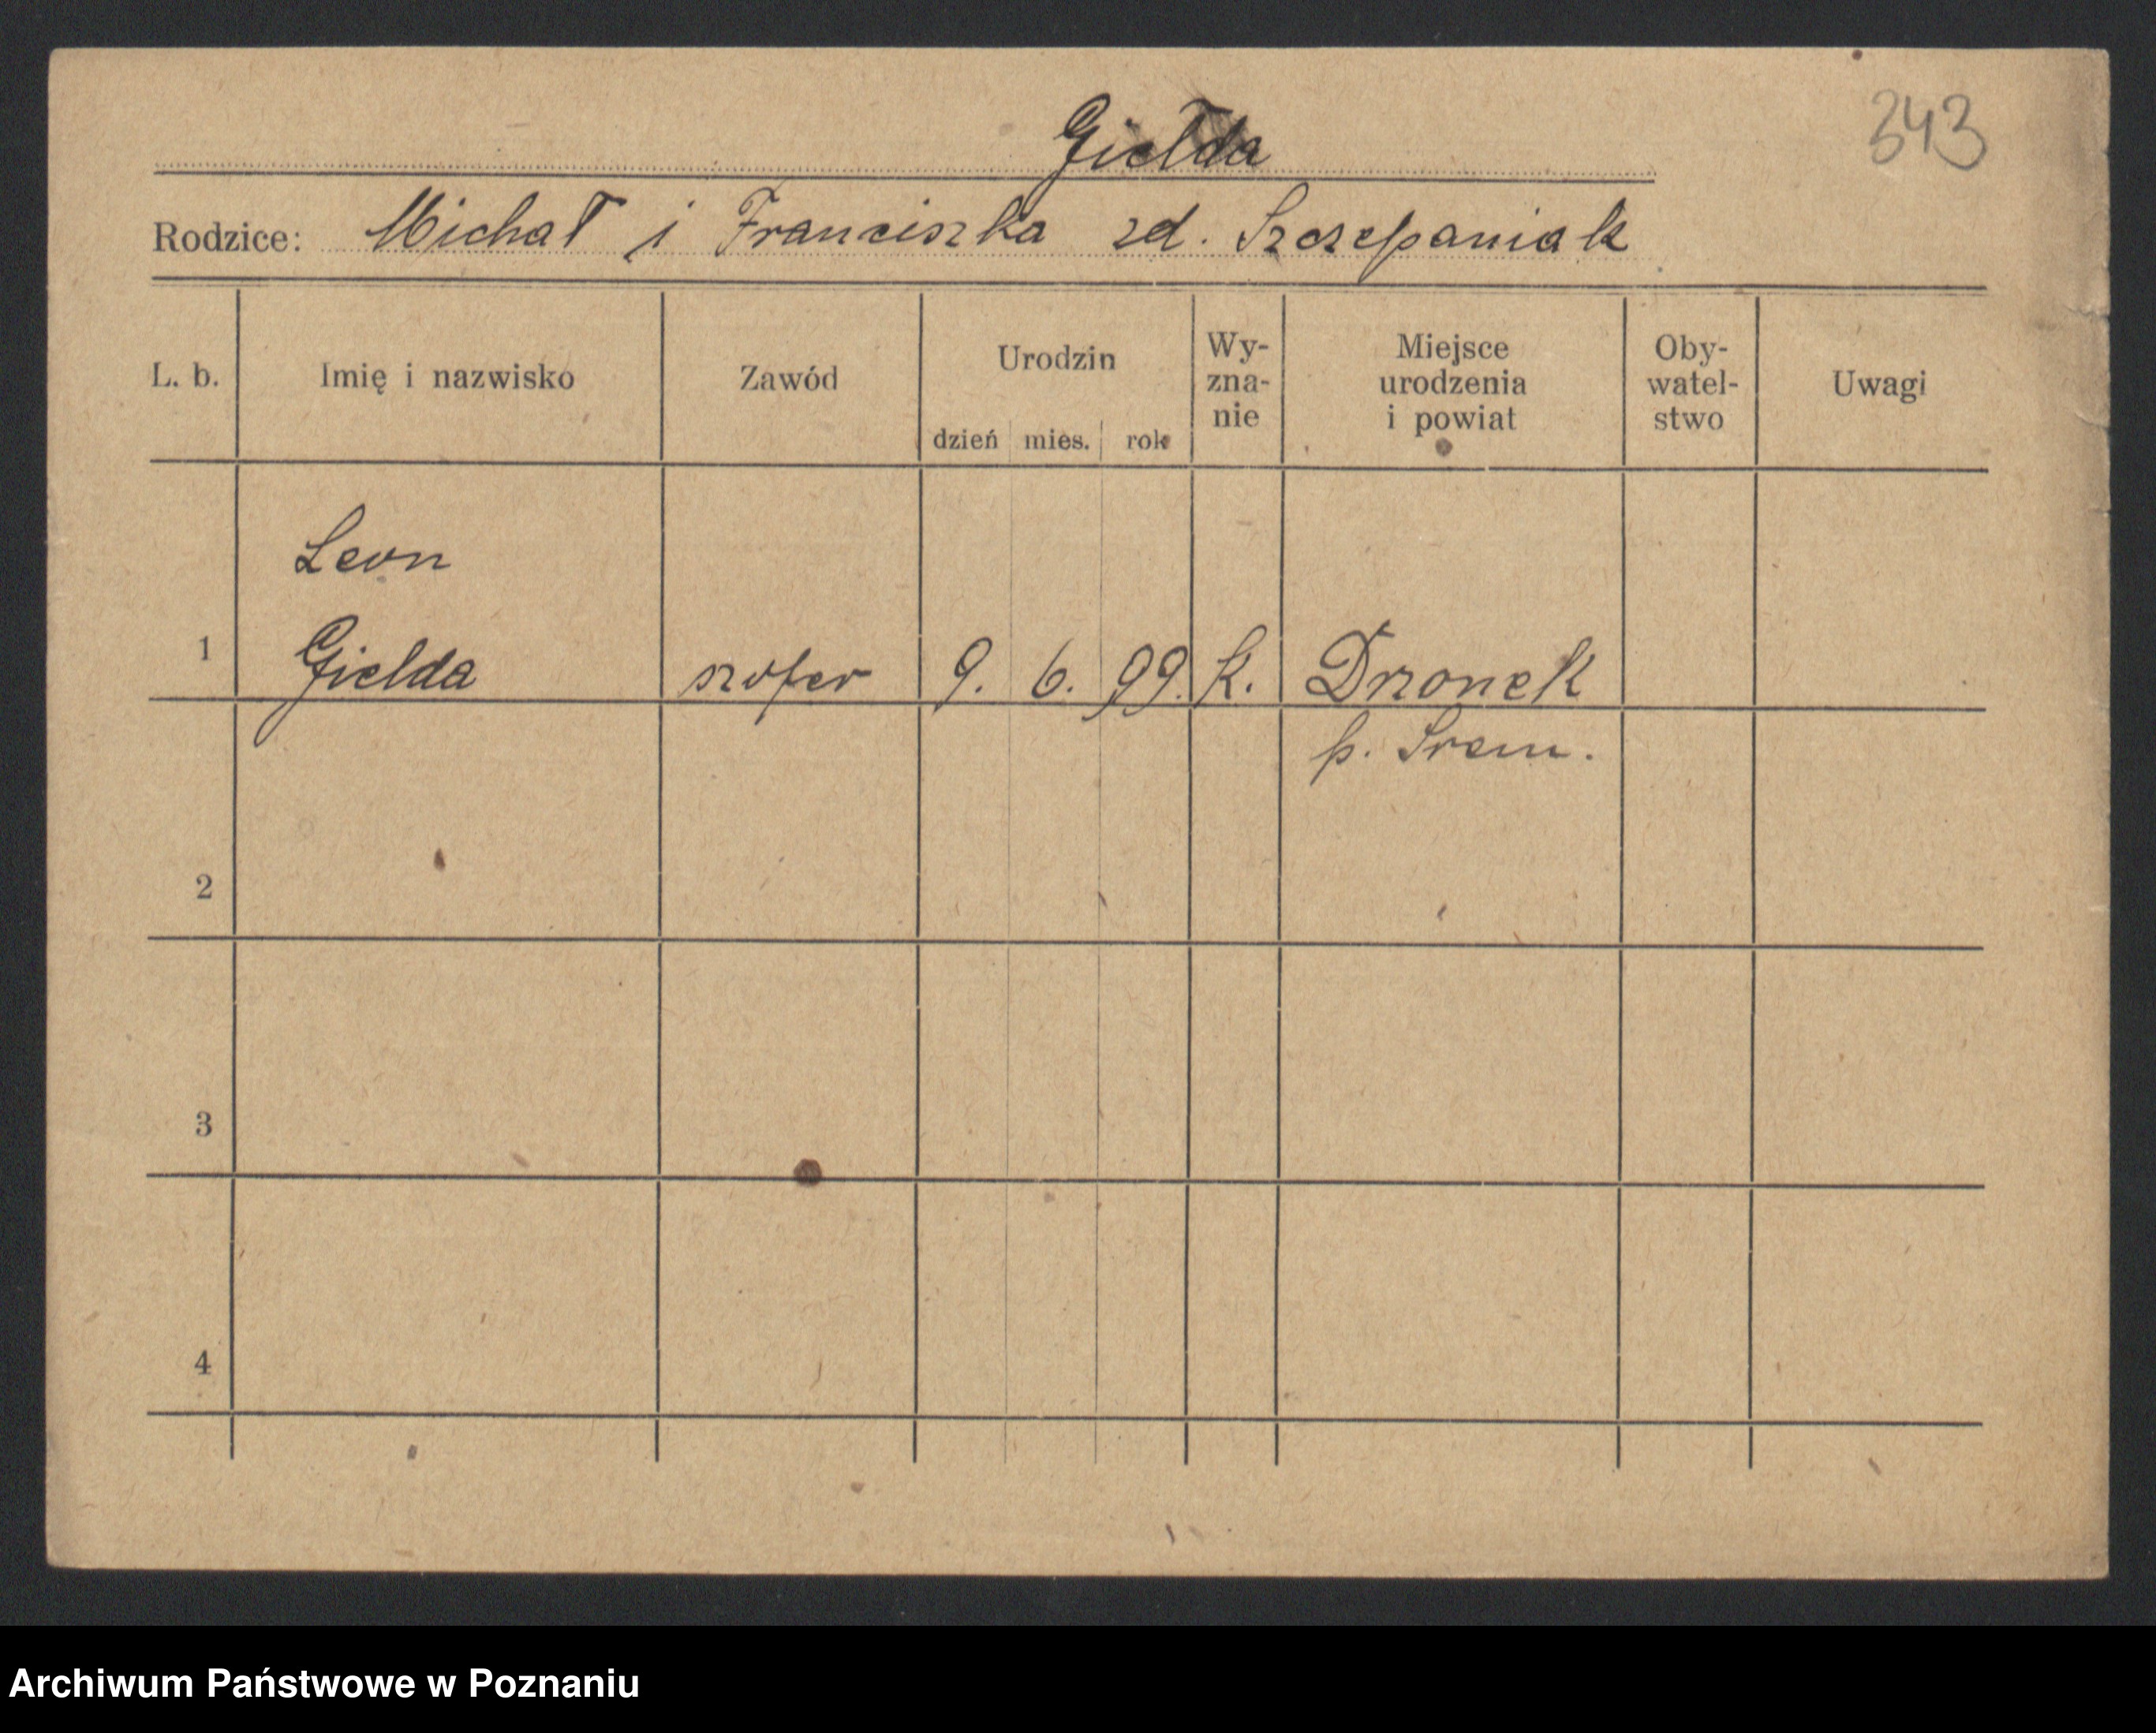 343
Giełda
Rodzice: Michał i Franciszka zd. Szczepaniak
L. b. Imię i nazwisko Zawód Urodzin dzień mies. rok Wy-zna-nie Miejsce urodzenia i powiat Oby-watel-stwo Uwagi
Leon
1 Gielda szofer 9. 6. 99. k. Drzonek
p. Srem.
2
3
4
Archiwum Państwowe w Poznaniu